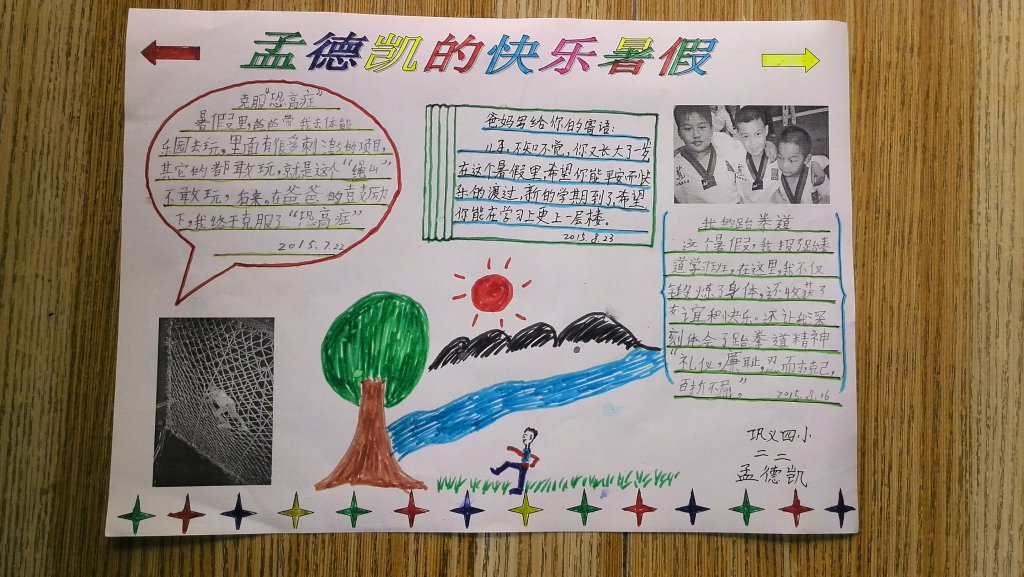 孟德凯的快乐暑假
克服"恐高症"
暑假里,爸爸带我去体能
乐园去玩,里面有很多刺激的项目,
其它的都敢玩,就是这个"绳山"
不敢玩,后来,在爸爸的鼓励
下,我终于克服了"恐高症"
2015.7.22
爸妈写给你的寄语:
儿子,不知不觉,你又长大了一岁,
在这个暑假里,希望你能平安而快
乐的渡过,新的学期到了,希望
你能在学习上更上一层楼。
2015.8.23
我的跆拳道
这个暑假,我报了跆拳
道学习班,在这里,我不仅
锻炼了身体,还收获了
友谊和快乐。还让我深
刻体会了跆拳道精神
"礼仪,廉耻,忍耐克己,
百折不屈。"
2015.8.16
巩义四小
二二
孟德凯